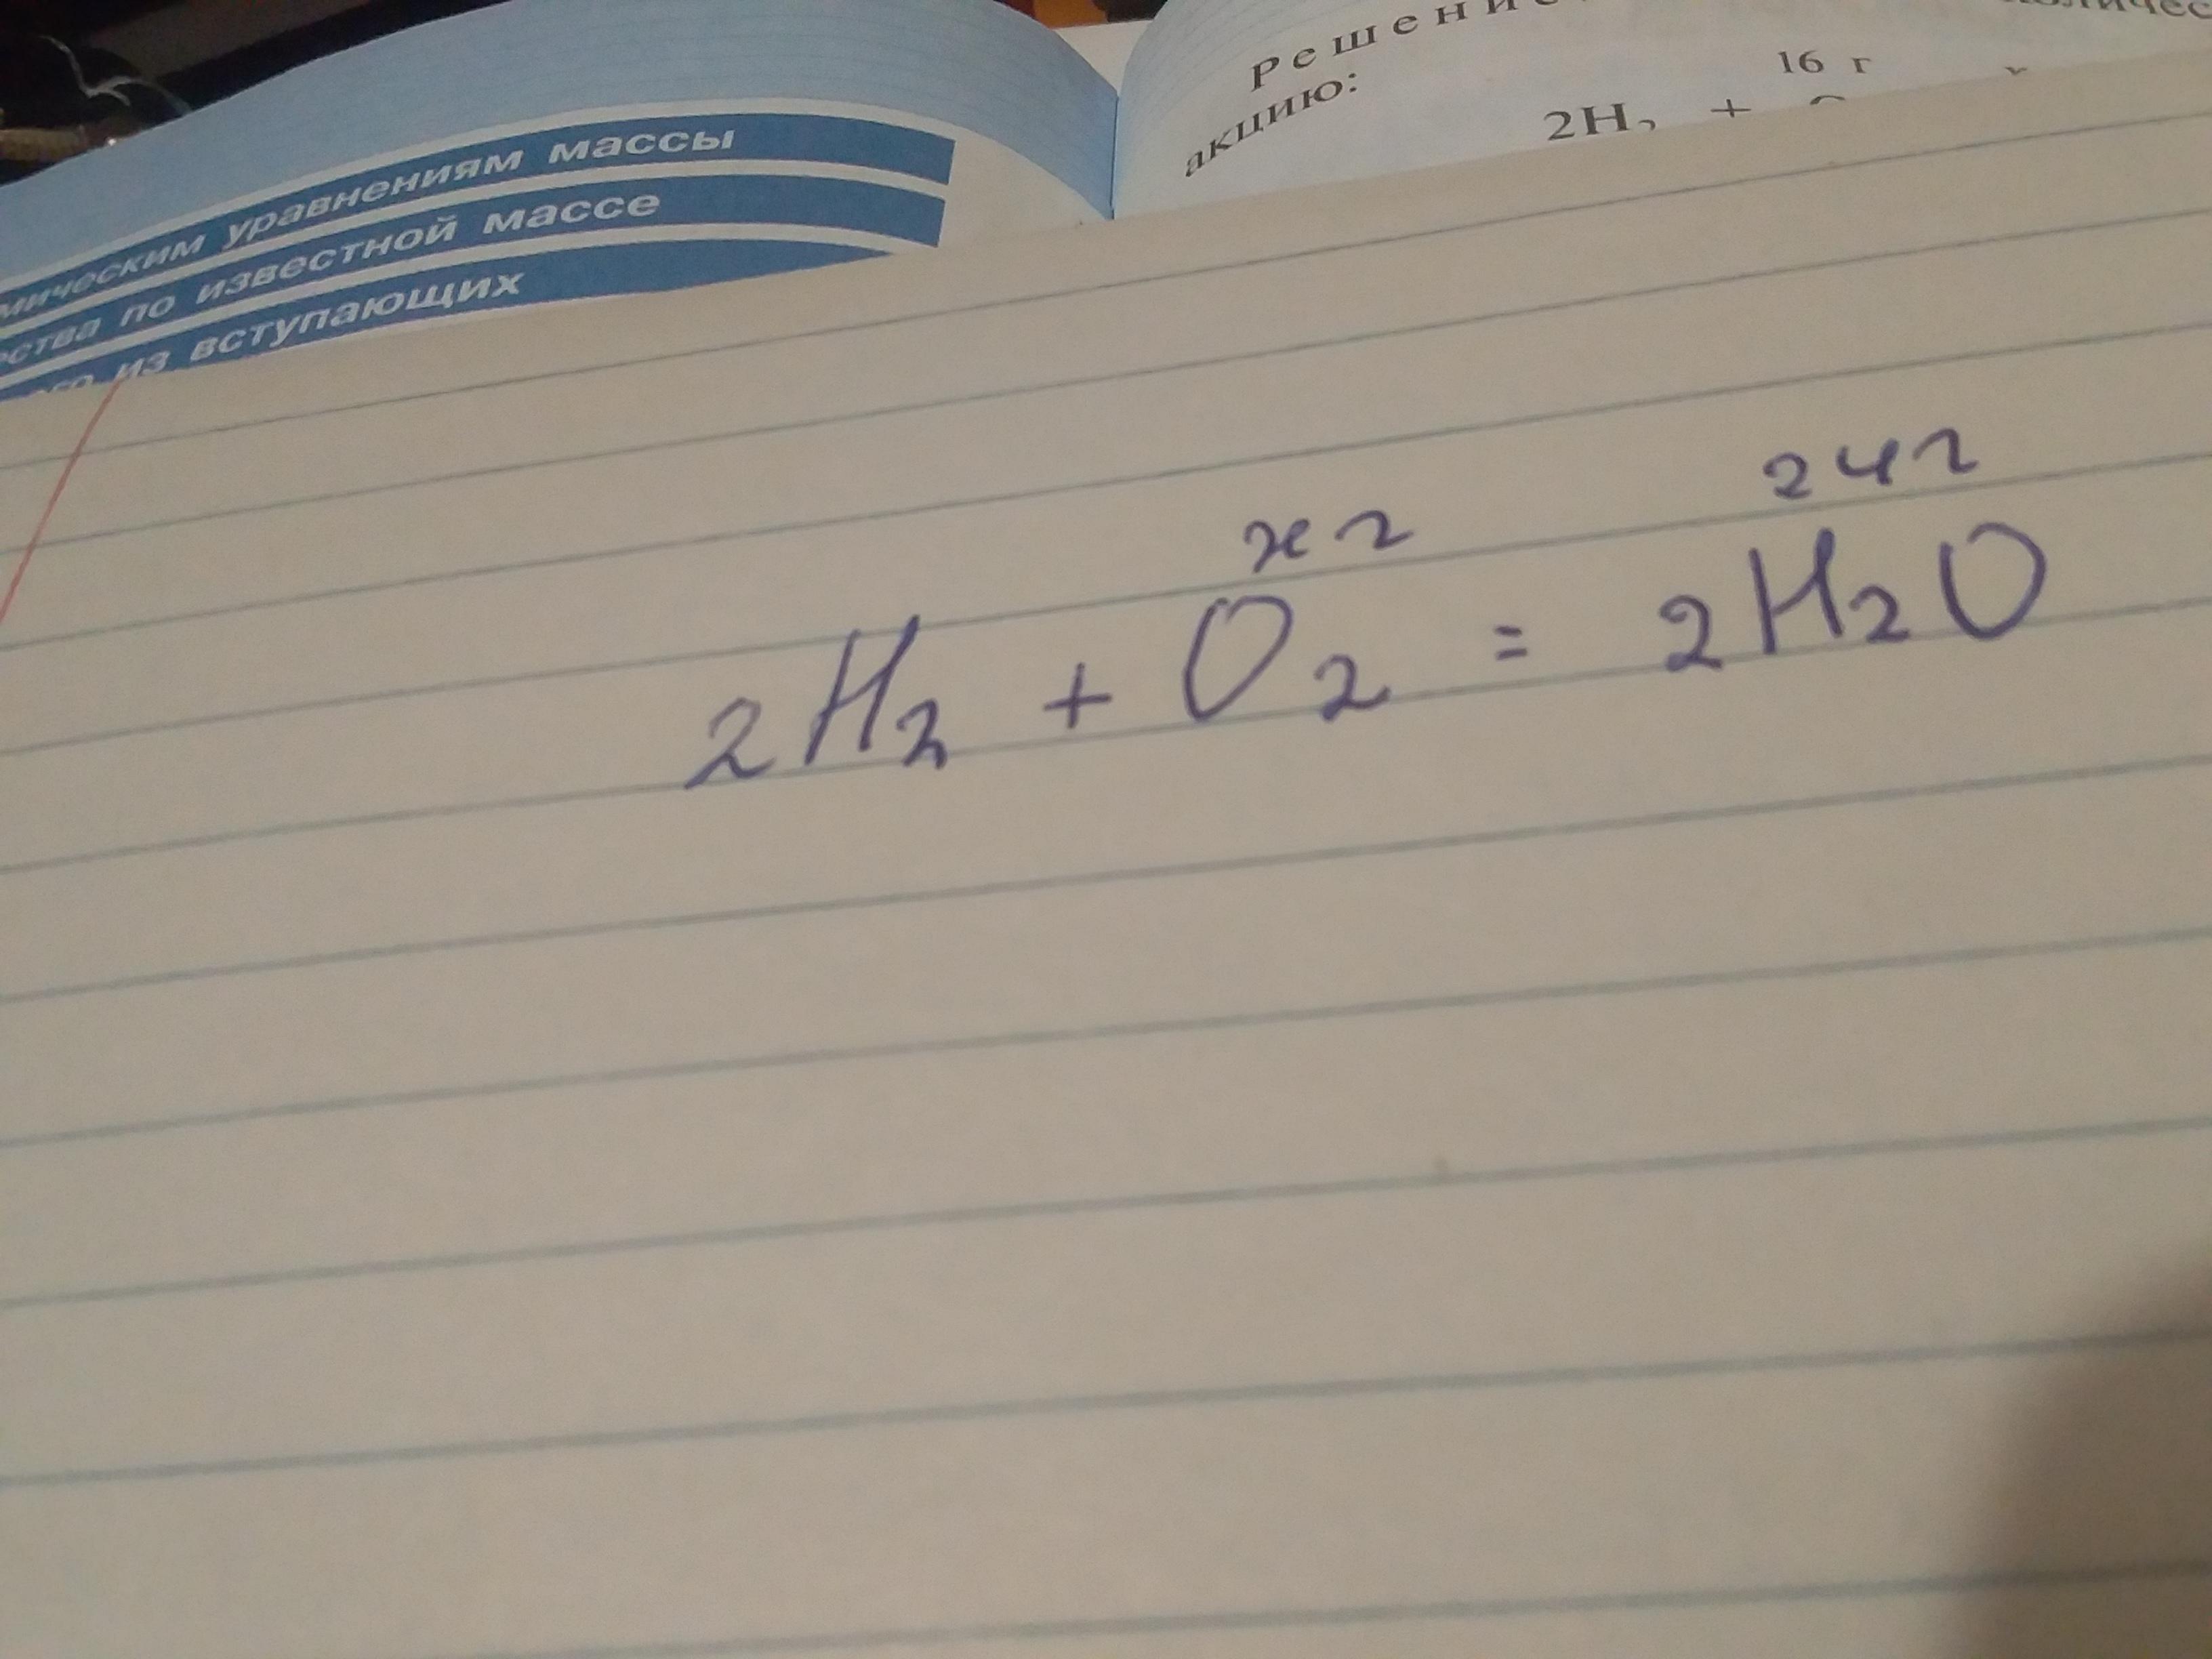 мическим уравнениям массы
ства по известной массе
из вступающих
Решение
акцию:
16 г
2H₂ +
x г 24 г
2H₂ + O₂ = 2H₂O